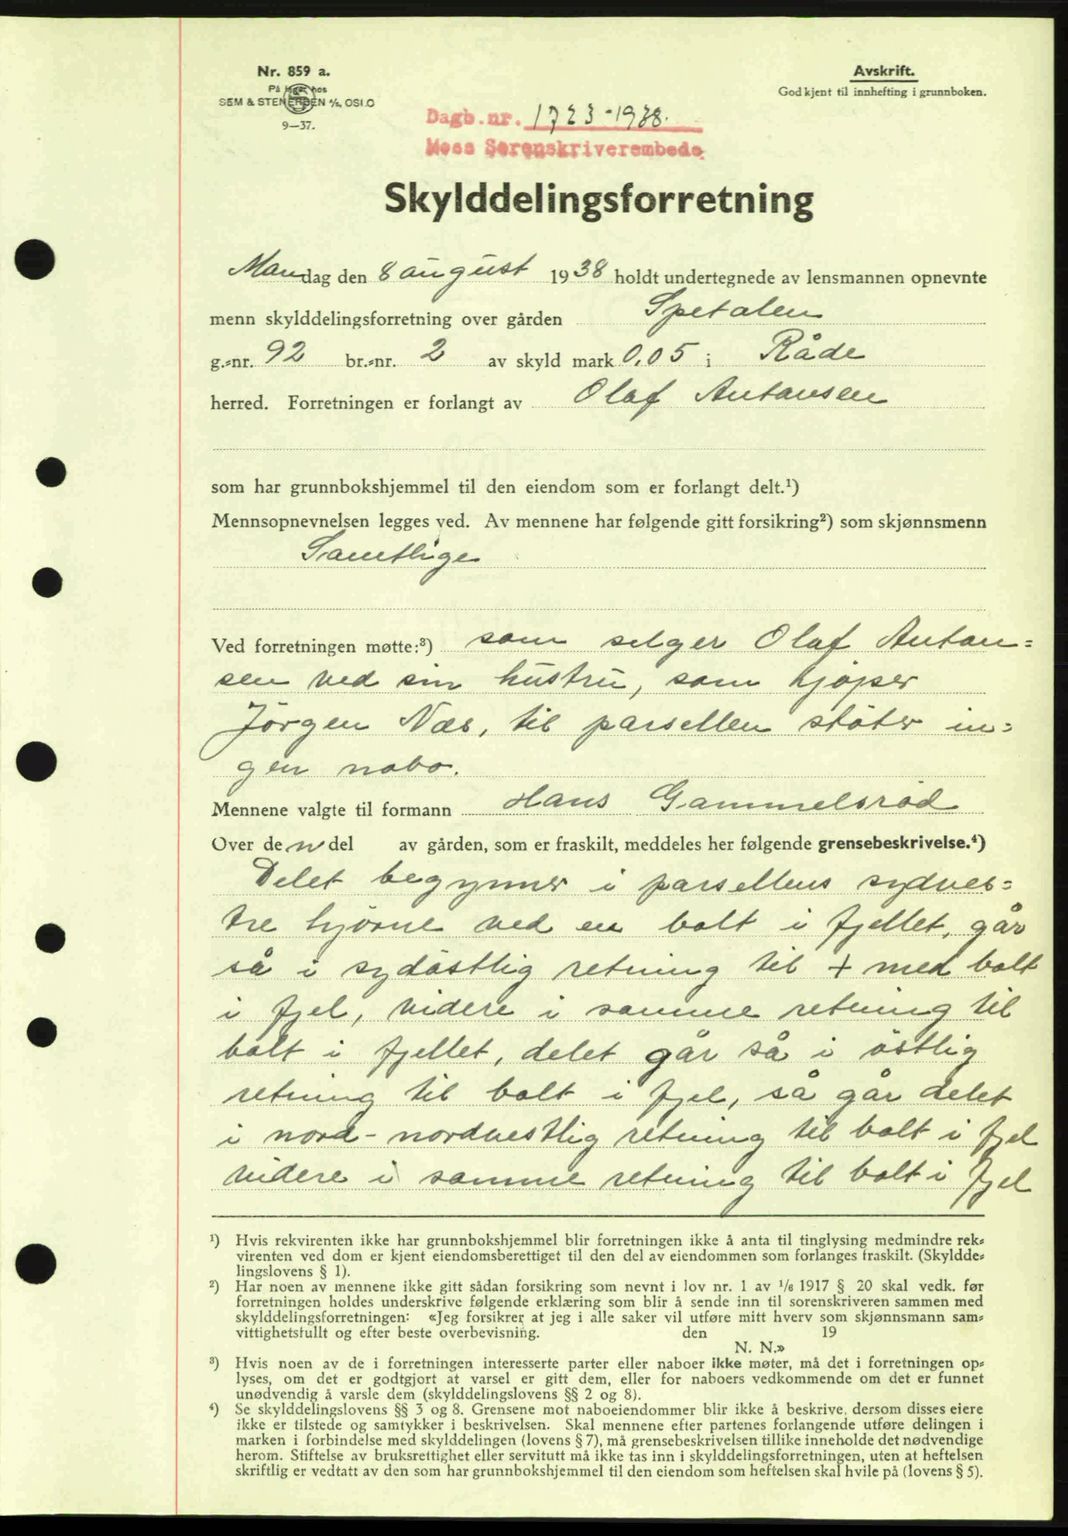 Nr. 859 a.
På lager hos
SEM & STENERSEN A/S, OSLO
9—37.
Avskrift.
Godkjent til innhefting i grunnboken.
Dagb.nr. 1723-1938.
Moss Sorenskriverembede
Skylddelingsforretning
Mandag den 8 august 1938 holdt undertegnede av lensmannen opnevnte
menn skylddelingsforretning over gården Spetalen
g.-nr. 92 br.-nr. 2 av skyld mark 0,05 i Råde
herred. Forretningen er forlangt av Olaf Antonsen
som har grunnbokshjemmel til den eiendom som er forlangt delt.¹)
Mennsopnevnelsen legges ved. Av mennene har følgende gitt forsikring²) som skjønnsmenn
Samtlige
Ved forretningen møtte:³) som selger Olaf Anton=
sen ved sin hustru, som kjøper
Jörgen Næs, til parsellen støter in=
gen nabo.
Mennene valgte til formann Hans Gammelsrød
Over den del av gården, som er fraskilt, meddeles her følgende grensebeskrivelse.⁴)
Delet begynner i parsellens sydves=
tre hjörne ved en bolt i fjellet, går
så i sydöstlig retning til + med bolt
i fjel, videre i samme retning til
bolt i fjellet, delet går så i östlig
retning til bolt i fjel, så går delet
i nord-nordvestlig retning til bolt i fjel
videre i samme retning til bolt i fjel
¹) Hvis rekvirenten ikke har grunnbokshjemmel blir forretningen ikke å anta til tinglysing medmindre rek-
virenten ved dom er kjent eiendomsberettiget til den del av eiendommen som forlanges fraskilt. (Skyldde-
lingslovens § 1).
²) Har noen av mennene ikke gitt sådan forsikring som nevnt i lov nr. 1 av 1/6 1917 § 20 skal vedk. før
forretningen holdes underskrive følgende erklæring som blir å sende inn til sorenskriveren sammen med
skylddelingsforretningen: «Jeg forsikrer at jeg i alle saker vil utføre mitt hverv som skjønnsmann sam-
vittighetsfullt og efter beste overbevisning. den 19
N. N.»
³) Hvis noen av de i forretningen interesserte parter eller naboer ikke møter, må det i forretningen op-
lyses, om det er godtgjort at varsel er gitt dem, eller for naboers vedkommende om det er funnet
unødvendig å varsle dem (skylddelingslovens §§ 2 og 8).
⁴) Se skylddelingslovens §§ 3 og 8. Grensene mot naboeiendommer blir ikke å beskrive, dersom disses eiere
ikke er tilstede og samtykker i beskrivelsen. Skal mennene efter partenes forlangende utføre delingen i
marken i forbindelse med skylddelingen (lovens § 7), må grensebeskrivelsen tillike inneholde det nødvendige
herom. Stiftelse av bruksrettighet eller servitutt må ikke tas inn i skylddelingsforretningen, uten at heftelsen
skriftlig er vedtatt av den som har grunnbokshjemmel til den eiendom som heftelsen skal hvile på (lovens § 5).